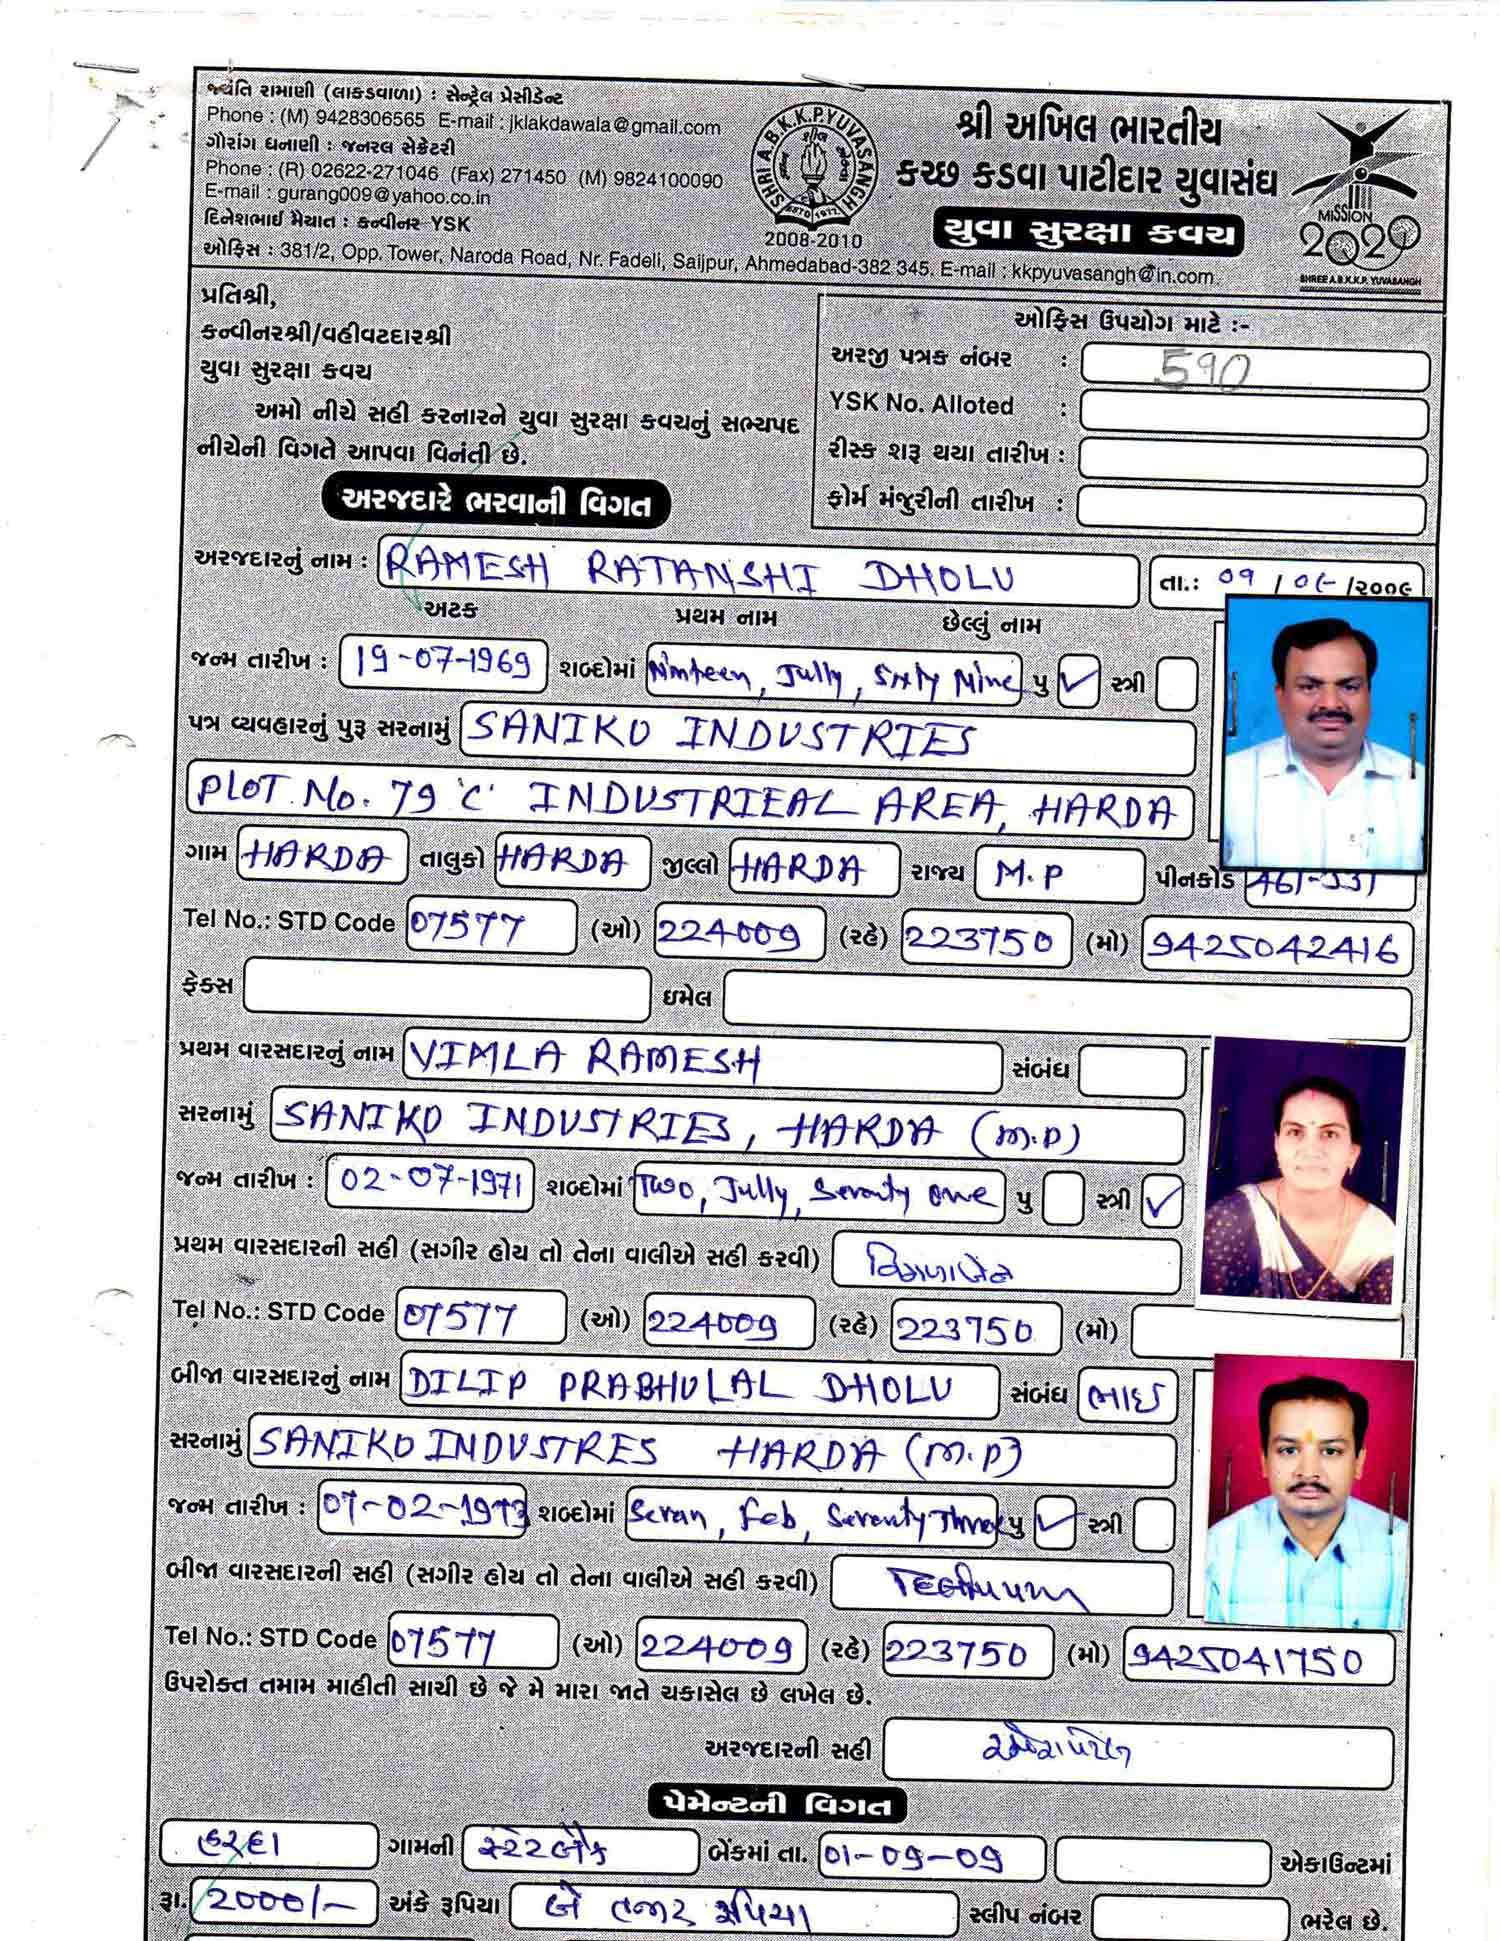 જયંતિ રામાણી (લાકડવાળા) : સેન્ટ્રેલ પ્રેસીડેન્ટ
Phone : (M) 9428306565 E-mail : jklakdawala@gmail.com
ગૌરાંગ ધનાણી : જનરલ સેક્રેટરી
Phone : (R) 02622-271046 (Fax) 271450 (M) 9824100090
E-mail : gurang009@yahoo.co.in
દિનેશભાઈ મેયાત : કન્વીનર-YSK
ઓફિસ : 381/2, Opp. Tower, Naroda Road, Nr. Fadeli, Saijpur, Ahmedabad-382 345. E-mail : kkpyuvasangh@in.com.
SHRI A.B.K.K.P. YUVASANGH
ESTD 1972
2008-2010
શ્રી અખિલ ભારતીય
કચ્છ કડવા પાટીદાર યુવાસંઘ
યુવા સુરક્ષા કવચ
MISSION
2020
SHREE A.B.K.K.P. YUVASANGH
પ્રતિશ્રી,
કન્વીનરશ્રી/વહીવટદારશ્રી
યુવા સુરક્ષા કવચ
અમો નીચે સહી કરનારને યુવા સુરક્ષા કવચનું સભ્યપદ
નીચેની વિગતે આપવા વિનંતી છે.
ઓફિસ ઉપયોગ માટે :-
અરજી પત્રક નંબર : 590
YSK No. Alloted :
રીસ્ક શરૂ થયા તારીખ :
ફોર્મ મંજુરીની તારીખ :
અરજદારે ભરવાની વિગત
અરજદારનું નામ : RAMESH RATANSHI DHOLU તા.: 09 / 0 /૨૦૦૯
અટક પ્રથમ નામ છેલ્લું નામ
જન્મ તારીખ : 19-07-1969 શબ્દોમાં Ninteen, Jully, Sixty Nine પુ ✓ સ્ત્રી
પત્ર વ્યવહારનું પુરૂ સરનામું SANIKO INDUSTRIES
PLOT. No. 79 'C' INDUSTRIEAL AREA, HARDA
ગામ HARDA તાલુકો HARDA જીલ્લો HARDA રાજ્ય M.P પીનકોડ 461-331
Tel No.: STD Code 07577 (ઓ) 224009 (રહે) 223750 (મો) 9425042416
ફેક્સ ઇમેલ
પ્રથમ વારસદારનું નામ VIMLA RAMESH સંબંધ
સરનામું SANIKO INDUSTRIES, HARDA (M.P)
જન્મ તારીખ : 02-07-1971 શબ્દોમાં Two, Jully, Seventy one પુ સ્ત્રી ✓
પ્રથમ વારસદારની સહી (સગીર હોય તો તેના વાલીએ સહી કરવી) વિમળાબેન
Tel No.: STD Code 07577 (ઓ) 224009 (રહે) 223750 (મો)
બીજા વારસદારનું નામ DILIP PRABHULAL DHOLU સંબંધ ભાઈ
સરનામું SANIKO INDUSTRES HARDA (M.P)
જન્મ તારીખ : 07-02-1973 શબ્દોમાં Sevan, Feb, Seventy Three પુ ✓ સ્ત્રી
બીજા વારસદારની સહી (સગીર હોય તો તેના વાલીએ સહી કરવી)
Tel No.: STD Code 07577 (ઓ) 224009 (રહે) 223750 (મો) 9425041750
ઉપરોક્ત તમામ માહીતી સાચી છે જે મે મારા જાતે ચકાસેલ છે લખેલ છે.
અરજદારની સહી
પેમેન્ટની વિગત
હરદા ગામની સ્ટેટબેંક બેંકમાં તા. 01-09-09 એકાઉન્ટમાં
રૂા. 2000/- અંકે રૂપિયા બે હજાર રૂપિયા સ્લીપ નંબર ભરેલ છે.